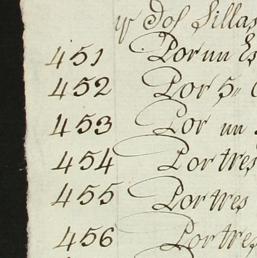 y Dos Sillas
451 Por un Es
452 Por 5
453 Por un
454 Por tres
455 Por tres
456 Por tres